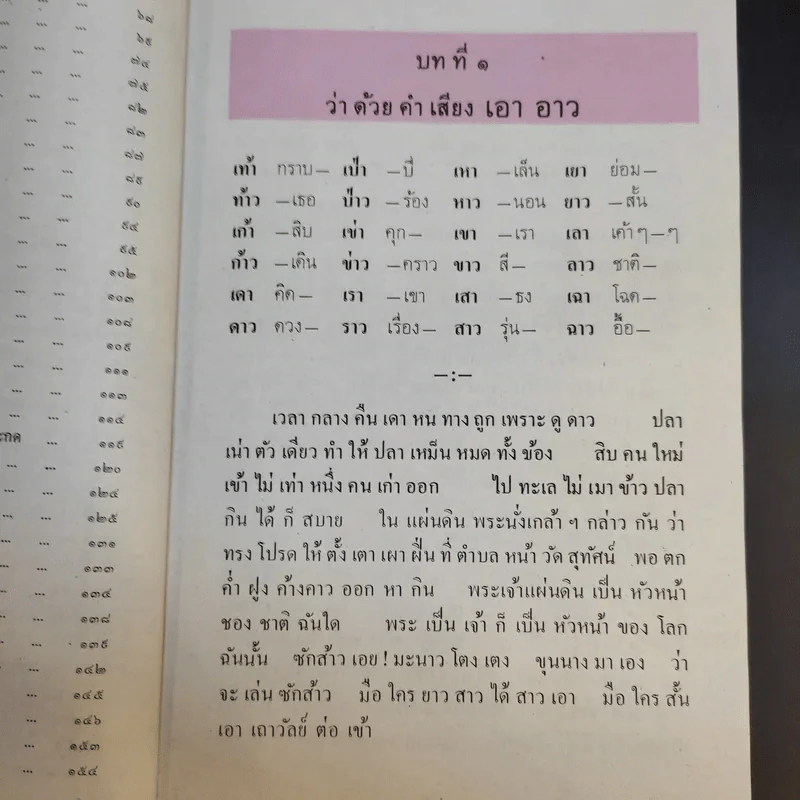 ๖๘
๖๙
๗๔
๗๕
๘๒
๘๓
๘๗
๘๙
๙๐
๙๔
๙๕
๑๐๒
๑๐๓
๑๐๘
๑๐๙
๑๑๑
๑๑๓
๑๑๔
๑๑๙
๑๒๐
๑๒๔
๑๒๕
๑๓๑
๑๓๓
๑๓๔
๑๓๘
๑๓๙
๑๔๒
๑๔๕
๑๔๖
๑๕๓
๑๕๔
บท ที่ ๑
ว่า ด้วย คำ เสียง เอา อาว
เท้า กราบ— เป่า —ปี่ เหา —เล็น เยา ย่อม—
ท้าว —เธอ ป่าว —ร้อง หาว —นอน ยาว —สั้น
เก้า —สิบ เข่า คุก— เขา —เรา เลา เค้า ๆ—ๆ
ก้าว —เดิน ข่าว —คราว ขาว สี— ลาว ชาติ—
เดา คิด— เรา —เขา เสา —ธง เฉา โฉด—
ดาว ดวง— ราว เรื่อง— สาว รุ่น— ฉาว อื้อ—
—:—
เวลา กลาง คืน เดา หน ทาง ถูก เพราะ ดู ดาว ปลา
เน่า ตัว เดียว ทำ ให้ ปลา เหม็น หมด ทั้ง ข้อง สิบ คน ใหม่
เข้า ไม่ เท่า หนึ่ง คน เก่า ออก ไป ทะเล ไม่ เมา ข้าว ปลา
กิน ได้ ก็ สบาย ใน แผ่นดิน พระนั่งเกล้า ฯ กล่าว กัน ว่า
ทรง โปรด ให้ ตั้ง เตา เผา ฝิ่น ที่ ตำบล หน้า วัด สุทัศน์ พอ ตก
ค่ำ ฝูง ค้างคาว ออก หา กิน พระเจ้าแผ่นดิน เป็น หัวหน้า
ของ ชาติ ฉันใด พระ เป็น เจ้า ก็ เป็น หัวหน้า ของ โลก
ฉันนั้น ซักส้าว เอย ! มะนาว โตง เตง ขุนนาง มา เอง ว่า
จะ เล่น ซักส้าว มือ ใคร ยาว สาว ได้ สาว เอา มือ ใคร สั้น
เอา เถาวัลย์ ต่อ เข้า